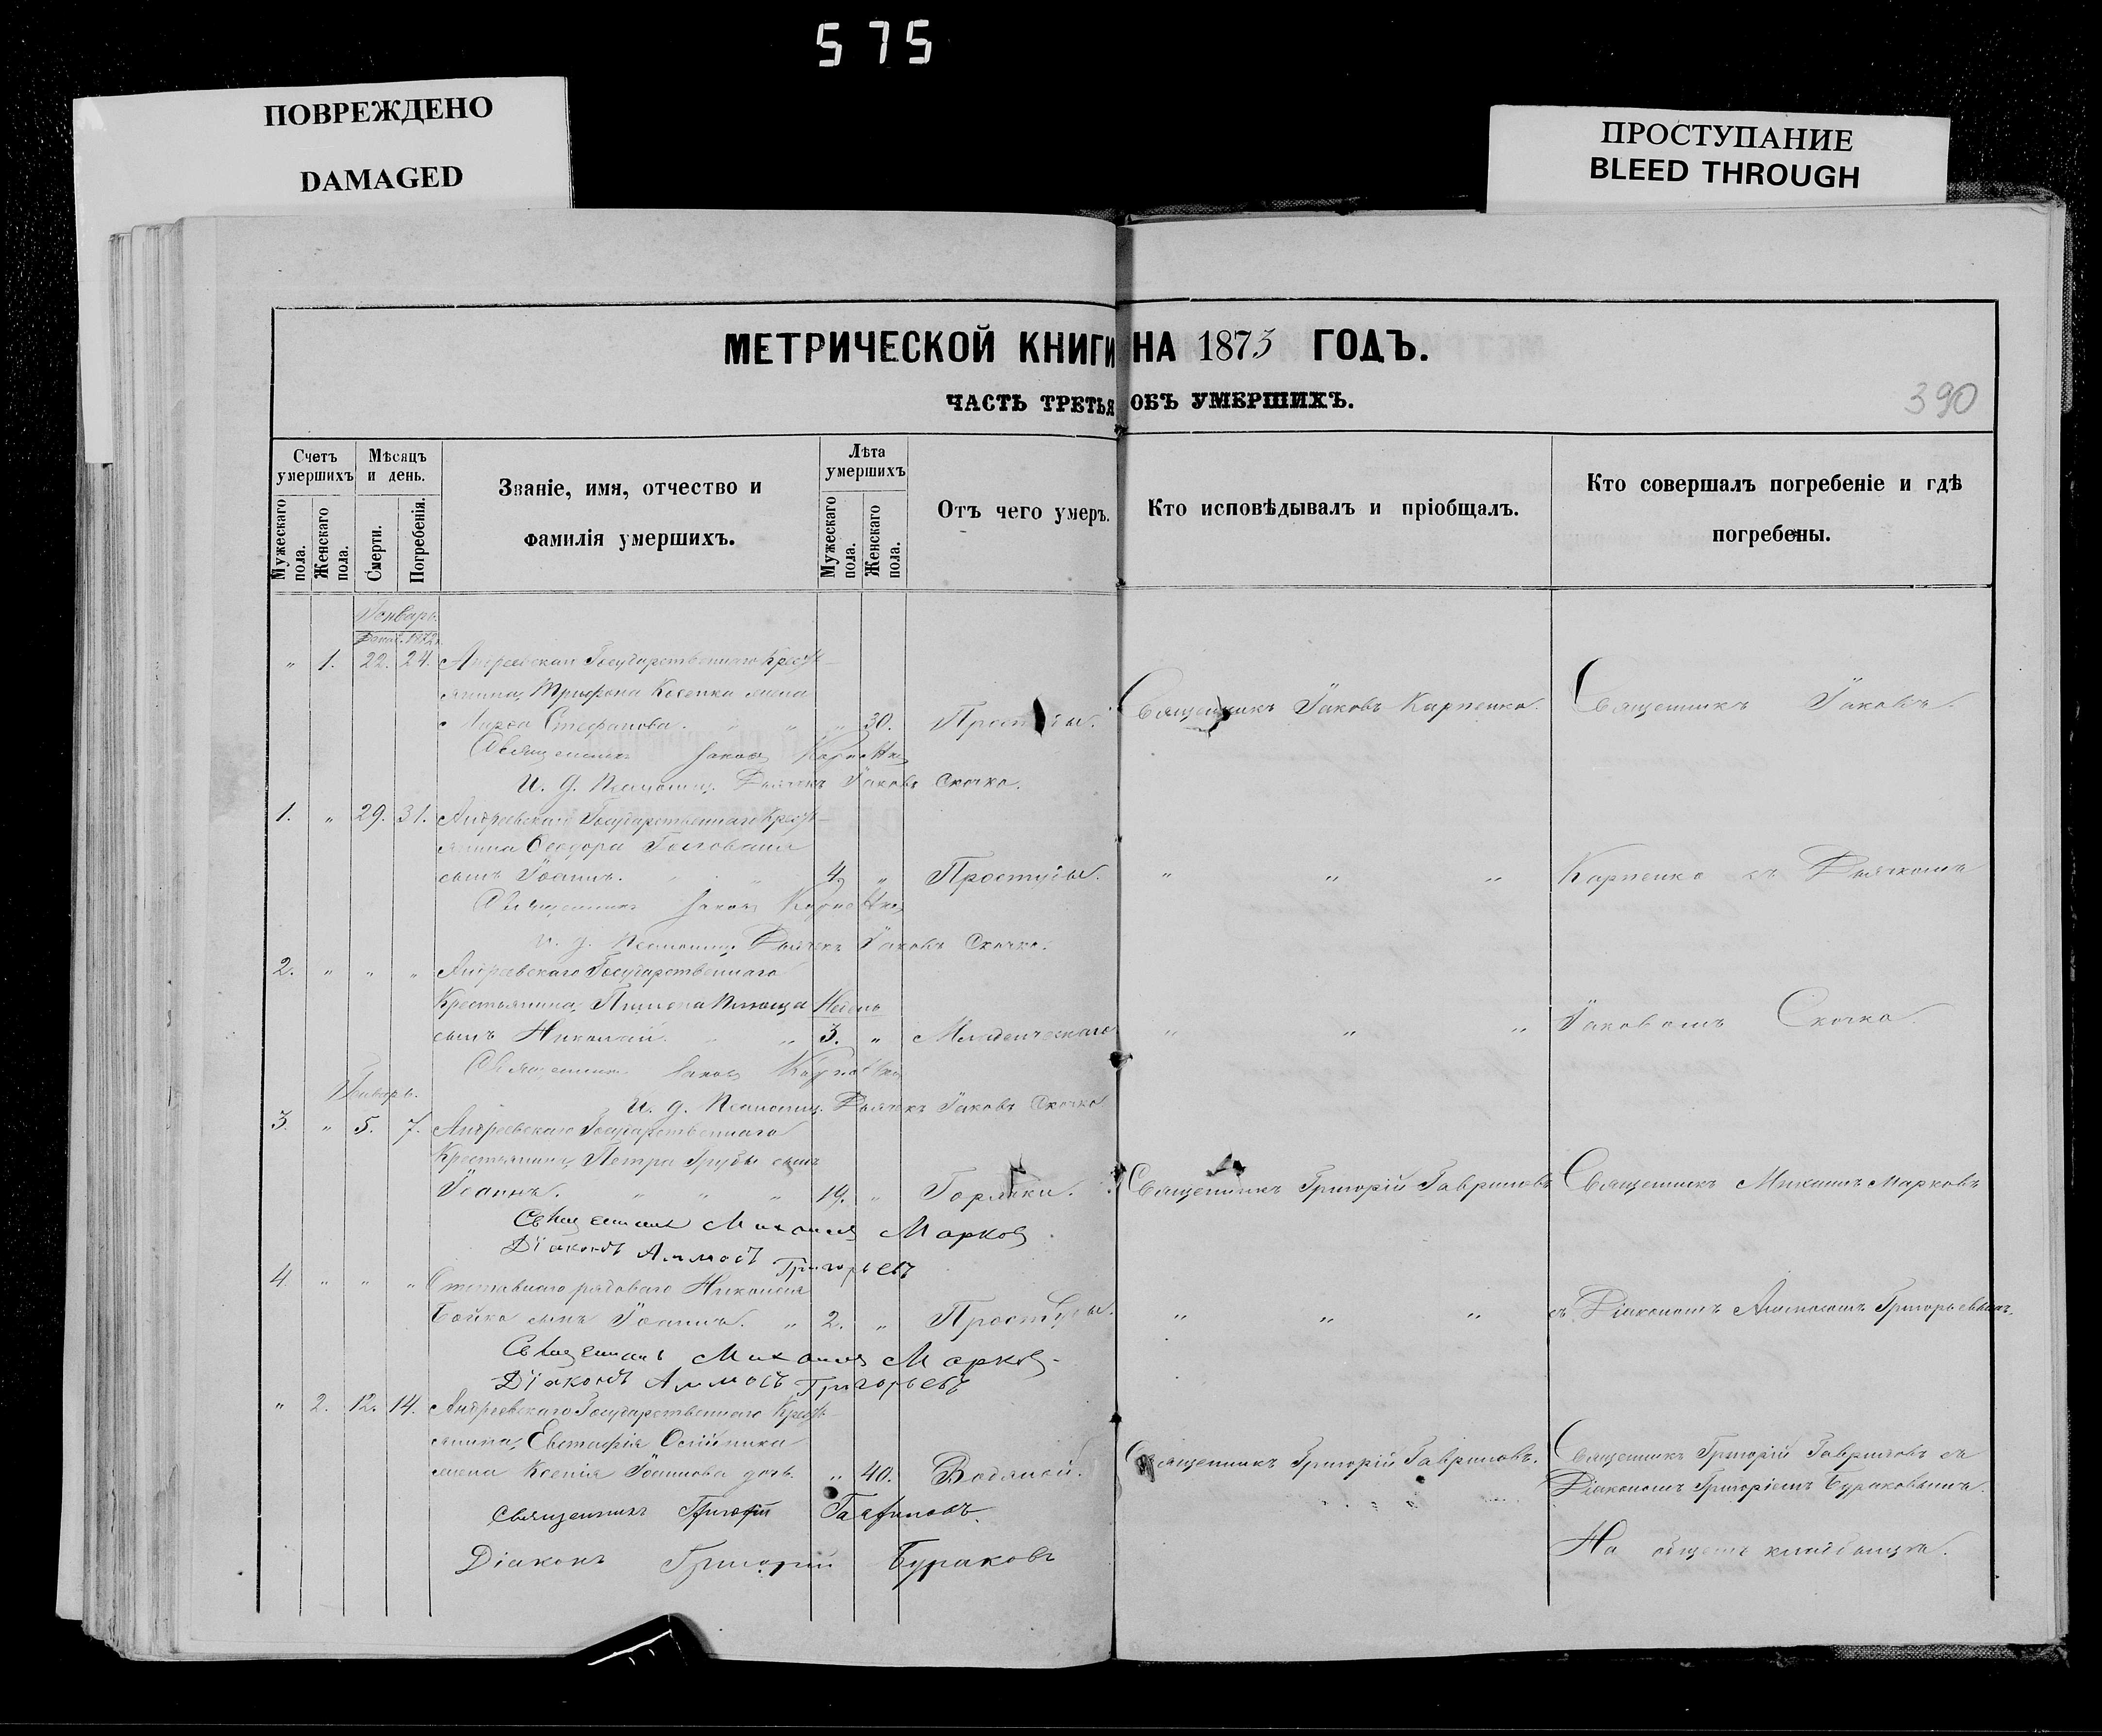 575
ПОВРЕЖДЕНО
DAMAGED
ПРОСТУПАНИЕ
BLEED THROUGH
МЕТРИЧЕСКОЙ КНИГИ НА 1873 ГОДЪ.
ЧАСТЬ ТРЕТЬЯ ОБЪ УМЕРШИХЪ.
390
Счетъ умершихъ
Мужескаго пола.
Женскаго пола.
Мѣсяцъ и день.
Смерти.
Погребенія.
Званіе, имя, отчество и фамилія умершихъ.
Лѣта умершихъ
Мужескаго пола.
Женскаго пола.
Отъ чего умеръ.
Кто исповѣдывалъ и пріобщалъ.
Кто совершалъ погребеніе и гдѣ погребены.
Январь.
1872
" 1. 22. 24. Андреевскаго Государственнаго Кресть-
янина, Трифона Косенка жена
Марѳа Стефанова. " " " 30. Простуды. Священникъ Іаковъ Карпенко. Священникъ Іаковъ
Священникъ Іаковъ Карпенко
И. д. Псаломщ. Дьячекъ Іаковъ Скочко.
1. " 29. 31. Андреевскаго Государственнаго Кресть-
янина Ѳеодора Головани
сынъ Іоаннъ. " " 4. " Простуды. " " " Карпенко съ Дьячкомъ
Священникъ Іаковъ Карпенко
И. д. Псаломщ. Дьячекъ Іаковъ Скочко.
2. " " " Андреевскаго Государственнаго
Крестьянина, Пимена Недель
сынъ Николай. " " 3. " Младенческаго " " " Іаковомъ Скочко.
Священникъ Іаковъ Карпенко
Январь.
И. д. Псаломщ. Дьячекъ Іаковъ Скочко
3. " 5. 7. Андреевскаго Государственнаго
Крестьянина, Петра Грубы сынъ
Іоаннъ. " " " 19. " Горячки. Священникъ Григорій Гавриловъ Священникъ Михаилъ Марковъ
Священникъ Михаилъ Марковъ.
Діаконъ Аммосъ Григорьевъ
4. " " " Отставнаго рядоваго Николая
Бойко сынъ Іоаннъ. " 2. " Простуды. " " " съ Діакономъ Аммосомъ Григорьевымъ.
Священникъ Михаилъ Марковъ.
Діаконъ Аммосъ Григорьевъ
" 2. 12. 14. Андреевскаго Государственнаго Кресть-
янина, Евстафія Олійника
жена Ксенія Іоаннова дочь. " 40. Водяной. Священникъ Григорій Гавриловъ. Священникъ Григорій Гавриловъ съ
Діакономъ Григоріемъ Бураковымъ.
Священникъ Григорій Гавриловъ.
Діаконъ Григорій Бураковъ
На общемъ кладбищѣ.